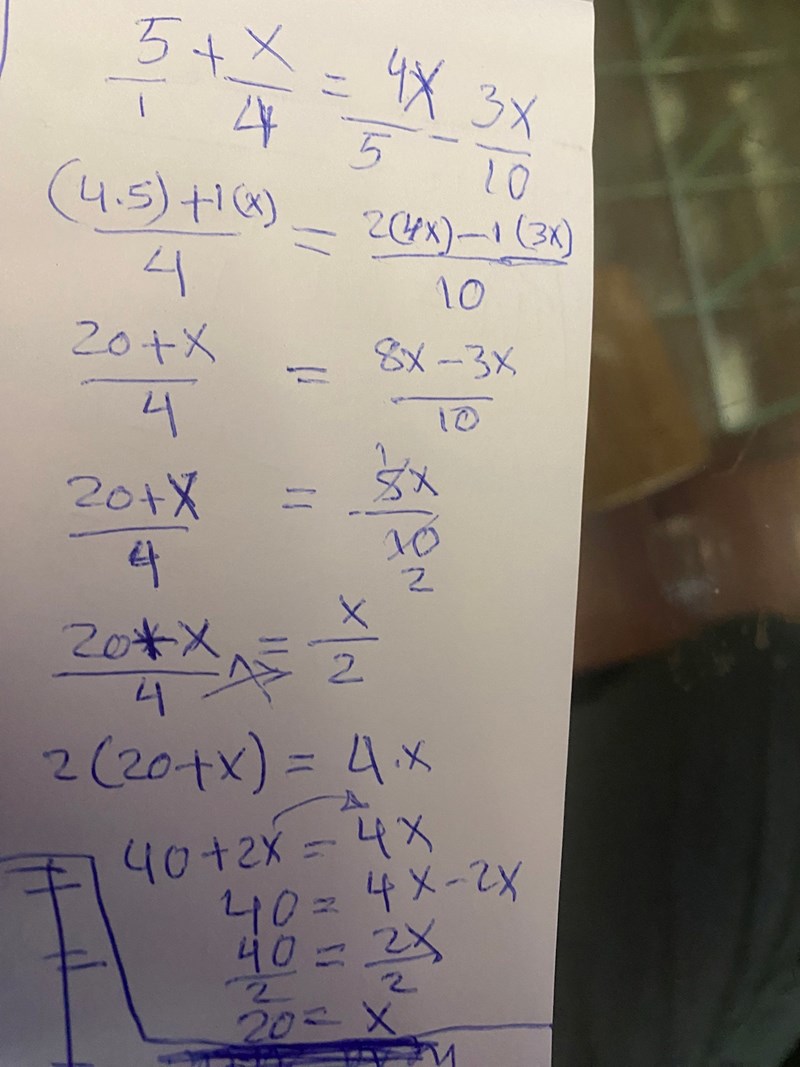 5/1 + x/4 = 4x/5 - 3x/10
(4.5)+1(x)/4 = 2(4x)-1(3x)/10
20+x/4 = 8x-3x/10
20+x/4 = 5x/10 1 2
20+x/4 = x/2
2(20+x) = 4.x
40+2x = 4x
40 = 4x-2x
40/2 = 2x/2
20 = x